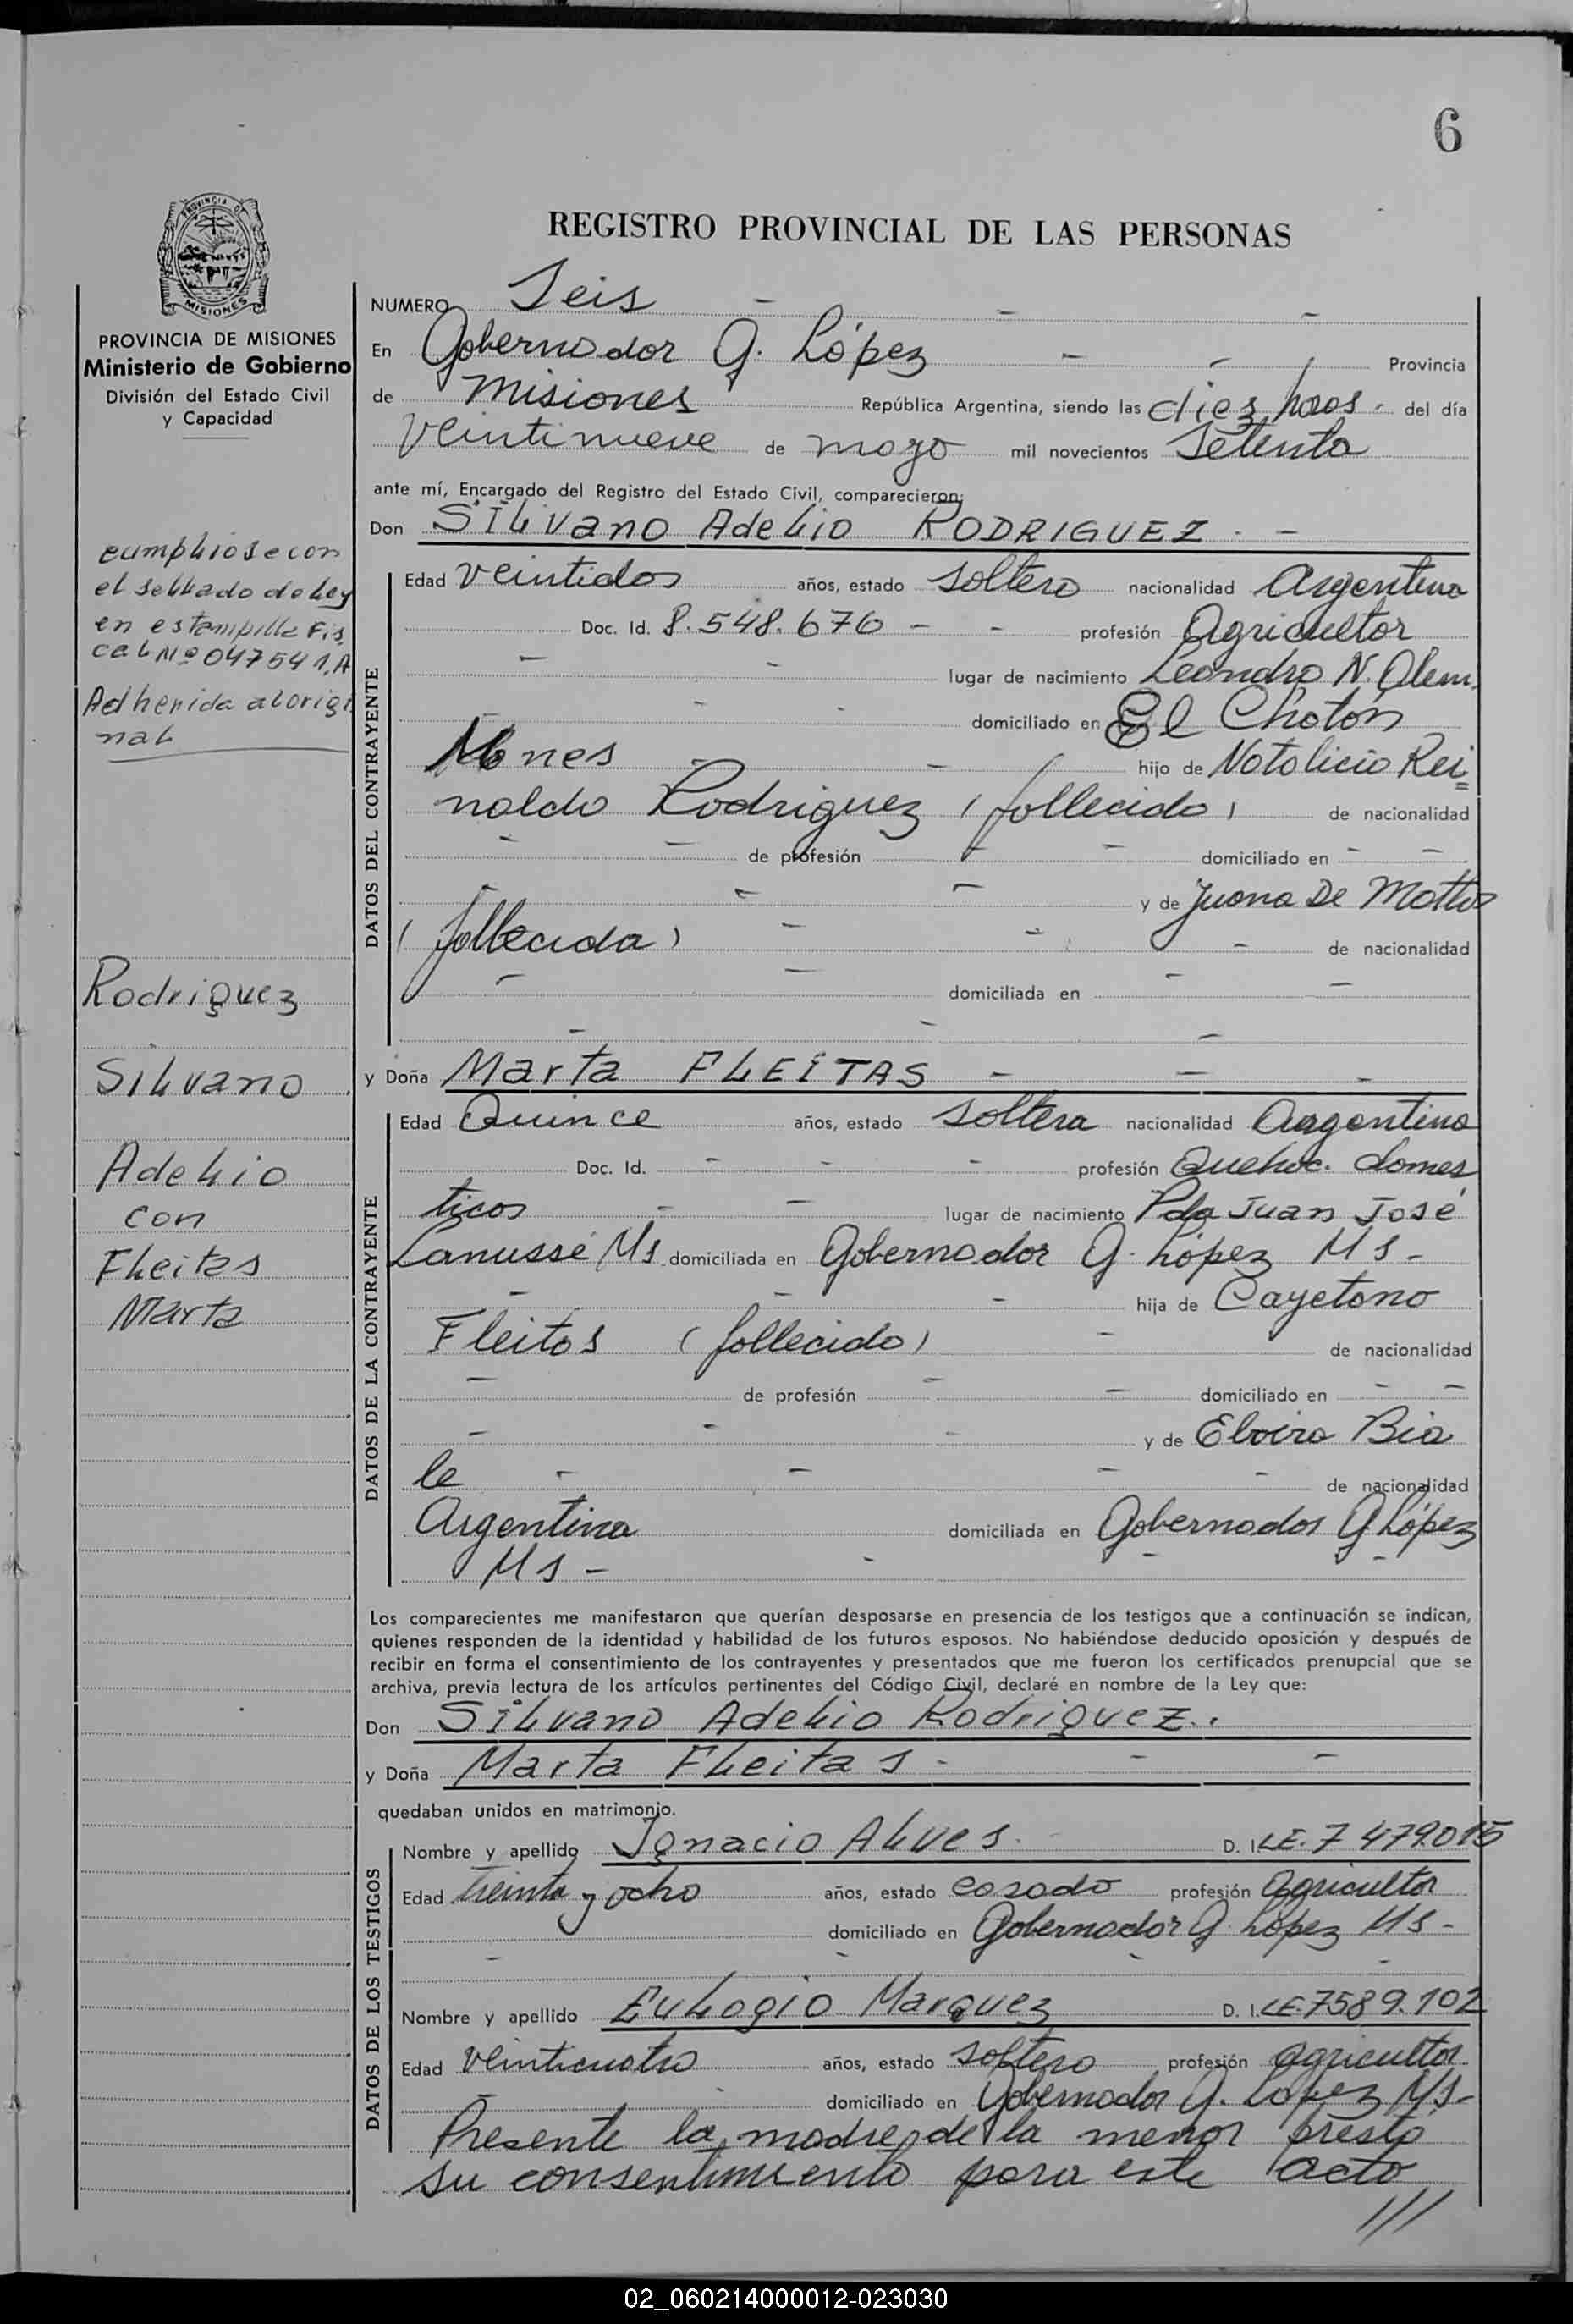 6
REGISTRO PROVINCIAL DE LAS PERSONAS
PROVINCIA DE MISIONES
Ministerio de Gobierno
División del Estado Civil
y Capacidad
cumpliose con
el sellado de Ley
en estampilla Fis
cal Nº 047541,A
Adherida al origi
nal
Rodriguez
Silvano
Adelio
con
Fleitas
Marta
NUMERO Seis
En Gobernador G. López Provincia
de Misiones República Argentina, siendo las diez horas del día
veintinueve de mayo mil novecientos Setenta
ante mí, Encargado del Registro del Estado Civil, comparecieron:
Don SILVANO AdeLiO RODRIGUEZ
DATOS DEL CONTRAYENTE
Edad veintidos años, estado soltero nacionalidad Argentina
Doc. Id. 8.548.676 profesión Agricultor
lugar de nacimiento Leandro N. Alem.
domiciliado en El Chatón
Mnes hijo de Natalicio Rei=
naldo Rodriguez (fallecido) de nacionalidad
de profesión domiciliado en
y de Juana De Mattos
(fallecida) de nacionalidad
domiciliada en
y Doña Marta FLEITAS
DATOS DE LA CONTRAYENTE
Edad Quince años, estado soltera nacionalidad Argentina
Doc. Id. profesión Quehac. domes
ticos lugar de nacimiento Pda Juan José
Lanusse Ms. domiciliada en Gobernador G. López Ms -
hija de Cayetano
Fleitas (fallecido) de nacionalidad
de profesión domiciliado en
y de Elvira Bia
le de nacionalidad
Argentina domiciliada en Gobernador G López
Ms -
Los comparecientes me manifestaron que querían desposarse en presencia de los testigos que a continuación se indican,
quienes responden de la identidad y habilidad de los futuros esposos. No habiéndose deducido oposición y después de
recibir en forma el consentimiento de los contrayentes y presentados que me fueron los certificados prenupcial que se
archiva, previa lectura de los artículos pertinentes del Código Civil, declaré en nombre de la Ley que:
Don Silvano Adelio Rodriguez.
y Doña Marta Fleitas
quedaban unidos en matrimonio.
DATOS DE LOS TESTIGOS
Nombre y apellido Ignacio Alves D. I. LE. 7 479.015
Edad treinta y ocho años, estado casado profesión agricultor
domiciliado en Gobernador G. López Ms -
Nombre y apellido Eulogio Marquez D. I. LE. 7589.102
Edad veinticuatro años, estado soltero profesión agricultor
domiciliado en Gobernador G. López Ms -
Presente la madre de la menor prestó
su consentimiento para este acto
///
02_060214000012-023030